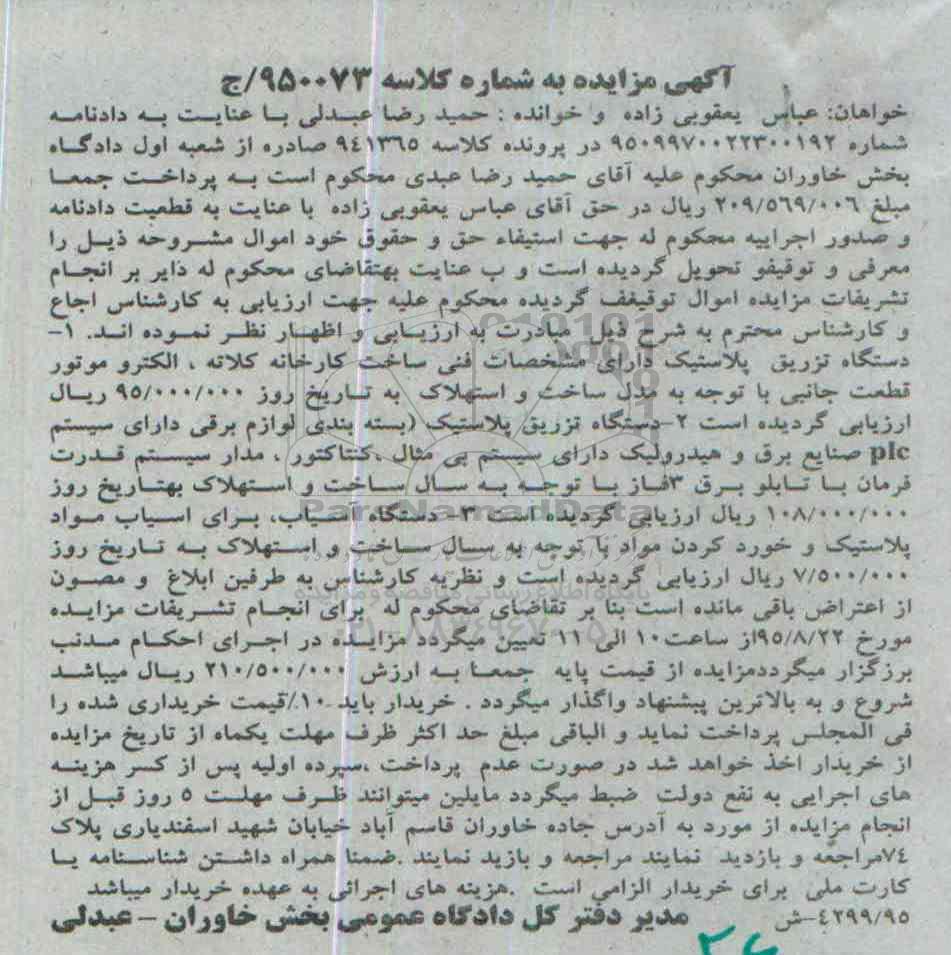 آگهی مزایده به شماره کلاسه ۹۵۰۰۷۳/ج
خواهان: عباس یعقوبی زاده و خوانده : حمید رضا عبدلی با عنایت به دادنامه
شماره ۹۵۰۹۹۷۰۰۲۲۳۰۰۱۹۲ در پرونده کلاسه ۹٤۱۳٦٥ صادره از شعبه اول دادگاه
بخش خاوران محکوم علیه آقای حمید رضا عبدی محکوم است به پرداخت جمعا
مبلغ ۲۰۹/٥٦۹/۰۰٦ ریال در حق آقای عباس یعقوبی زاده با عنایت به قطعیت دادنامه
و صدور اجراییه محکوم له جهت استیفاء حق و حقوق خود اموال مشروحه ذیل را
معرفی و توقیفو تحویل گردیده است و ب عنایت بهتقاضای محکوم له دایر بر انجام
تشریفات مزایده اموال توقیغف گردیده محکوم علیه جهت ارزیابی به کارشناس اجاع
و کارشناس محترم به شرح ذیل مبادرت به ارزیابی و اظهار نظر نموده اند. ۱-
دستگاه تزریق پلاستیک دارای مشخصات فنی ساخت کارخانه کلاته ، الکترو موتور
قطعت جانبی با توجه به مدل ساخت و استهلاک به تاریخ روز ۹٥/۰۰۰/۰۰۰ ریال
ارزیابی گردیده است ۲-دستگاه تزریق پلاستیک (بسته بندی لوازم برقی دارای سیستم
plc صنایع برق و هیدرولیک دارای سیستم بی مثال ،کنتاکتور ، مدار سیستم قدرت
فرمان با تابلو برق ۳فاز با توجه به سال ساخت و استهلاک بهتاریخ روز
۱۰۸/۰۰۰/۰۰۰ ریال ارزیابی گردیده است ۳- دستگاه آسیاب، برای اسیاب مواد
پلاستیک و خورد کردن مواد با توجه به سال ساخت و استهلاک به تاریخ روز
۷/٥۰۰/۰۰۰ ریال ارزیابی گردیده است و نظریه کارشناس به طرفین ابلاغ و مصون
از اعتراض باقی مانده است بنا بر تقاضای محکوم له برای انجام تشریفات مزایده
مورخ ۹٥/۸/۲۲از ساعت۱۰ الی ۱۱ تعیین میگردد مزایده در اجرای احکام مدنب
برزگزار میگرددمزایده از قیمت پایه جمعا به ارزش ۲۱۰/٥۰۰/۰۰۰ ریال میباشد
شروع و به بالاترین پیشنهاد واگذار میگردد . خریدار باید ۱۰٪قیمت خریداری شده را
فی المجلس پرداخت نماید و الباقی مبلغ حد اکثر ظرف مهلت یکماه از تاریخ مزایده
از خریدار اخذ خواهد شد در صورت عدم پرداخت ،سپرده اولیه پس از کسر هزینه
های اجرایی به نفع دولت ضبط میگردد مایلین میتوانند ظرف مهلت ٥ روز قبل از
انجام مزایده از مورد به آدرس جاده خاوران قاسم آباد خیابان شهید اسفندیاری پلاک
۷٤مراجعه و بازدید نمایند مراجعه و بازید نمایند .ضمنا همراه داشتن شناسنامه یا
کارت ملی برای خریدار الزامی است .هزینه های اجرائی به عهده خریدار میباشد
٤۲۹۹/۹٥-ش مدیر دفتر کل دادگاه عمومی بخش خاوران - عبدلی
ParsNamadData
پایگاه اطلاع رسانی مناقصه و مزایده